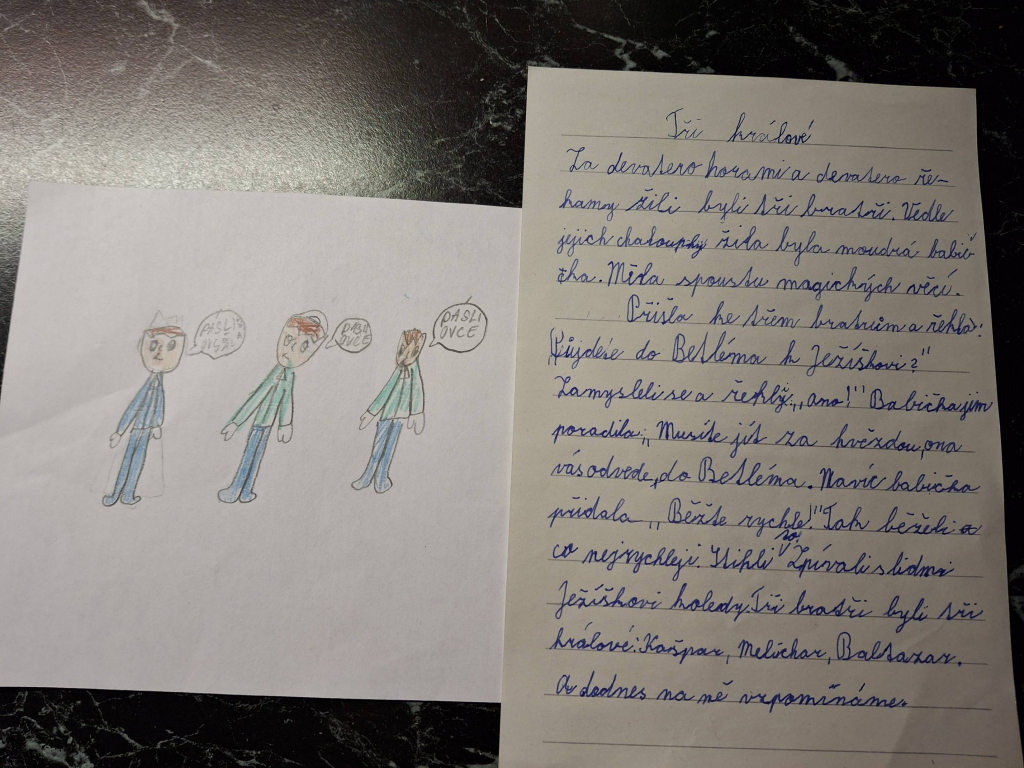 PASLI
OVCE
PASLI
OVCE
PASLI
OVCE
Tři králové
Za devatero horami a devatero ře-
kamy žili byli tři bratři. Vedle
jejich chaloupky žila byla moudrá babič
čka. Měla spoustu magických věcí.
Přišla ke třem bratrům a řekla:
„Půjdete do Betléma k Ježíškovi?"
Zamysleli se a řekly: „ano!" Babička jim
poradila: „Musíte jít za hvězdou, ona
vás odvede, do Betléma. Navíc babička
přidala „Běžte rychle!" Tak běželi
co nejrychleji. Stihli to! Zpívali s lidmi
Ježíškovi koledy. Tři bratři byli tři
králové: Kašpar, Melichar, Baltazar.
A dodnes na ně vzpomínáme.